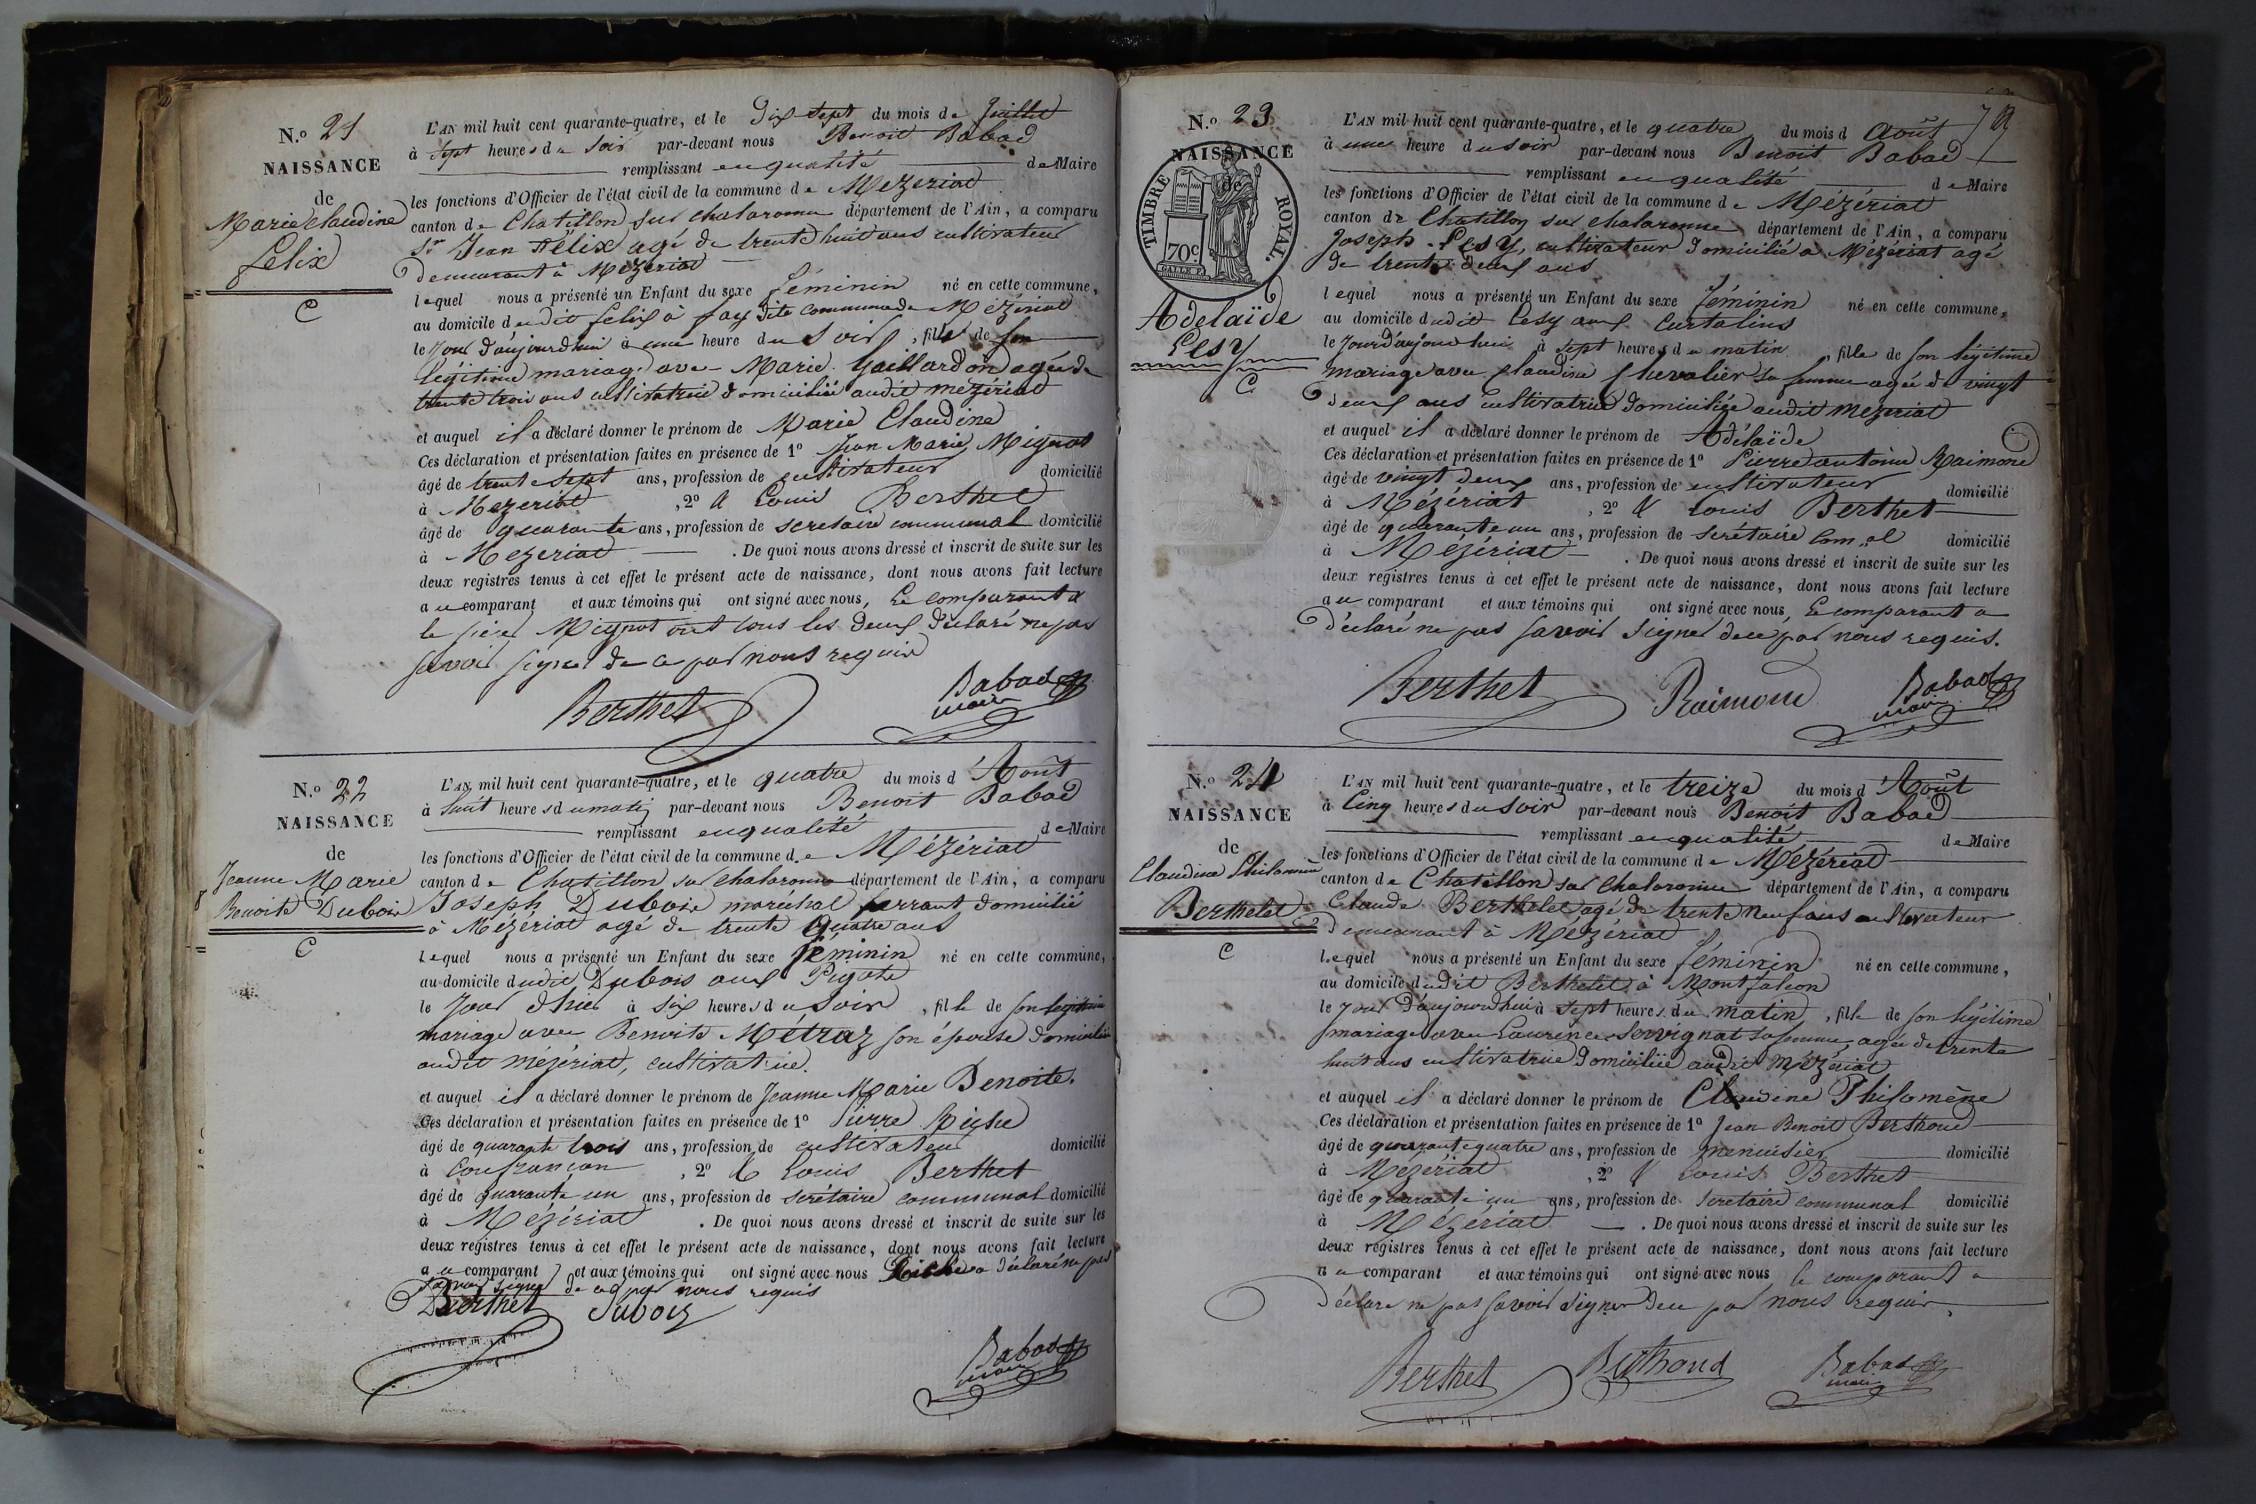 N.º 21
NAISSANCE
de
Marie Claudine
Félix
C
L'AN mil huit cent quarante-quatre, et le Dix sept du mois de Juillet
à sept heures du soir par-devant nous Benoit Babad
remplissant en qualité de Maire
les fonctions d'Officier de l'état civil de la commune de Mézeriat
canton de Chatillon sur chalaronne département de l'Ain, a comparu
Sr Jean Félix agé de trente huit ans cultivateur
demeurant à Mézeriat
lequel nous a présenté un Enfant du sexe féminin né en cette commune,
au domicile dudit felix à fay dite commune de Mézériat
le jour d'aujourdhui à une heure du soir, fille de son
légitime mariage avec Marie Gaillardon agée de
trente trois ans cultivatrice domiciliée audit mézériat
et auquel il a déclaré donner le prénom de Marie Claudine
Ces déclaration et présentation faites en présence de 1º Jean Marie Mignot
âgé de trente sept ans, profession de cultivateur domicilié
à Mezeriat, 2º & Louis Berthet
âgé de quarante ans, profession de secretaire communal domicilié
à Mezeriat. De quoi nous avons dressé et inscrit de suite sur les
deux registres tenus à cet effet le présent acte de naissance, dont nous avons fait lecture
au comparant et aux témoins qui ont signé avec nous, Le comparant &
le sieur Mignot ont tous les deux déclaré ne pas
savoir signer de ce par nous requis
Berthet
Babad
maire
N.º 22
NAISSANCE
de
Jeanne Marie
Benoite Dubois
C
L'AN mil huit cent quarante-quatre, et le quatre du mois d'Août
à huit heures du matin par-devant nous Benoit Babad
remplissant en qualité de Maire
les fonctions d'Officier de l'état civil de la commune de Mézériat
canton de Chatillon sur chalaronne département de l'Ain, a comparu
Joseph Dubois maréchal ferrant domicilié
à Mézériat agé de trente quatre ans
lequel nous a présenté un Enfant du sexe féminin né en cette commune,
au domicile dudit Dubois aux
le jour d'hier à six heures du soir, fille de son legitime
mariage avec Benoite Métraz son épouse domiciliée
audit mézériat, cultivatrice.
et auquel il a déclaré donner le prénom de Jeanne Marie Benoite.
Ces déclaration et présentation faites en présence de 1º Pierre
âgé de quarante trois ans, profession de cultivateur domicilié
à Confrançon, 2º & Louis Berthet
âgé de quarante un ans, profession de secrétaire communal domicilié
à Mézériat. De quoi nous avons dressé et inscrit de suite sur les
deux registres tenus à cet effet le présent acte de naissance, dont nous avons fait lecture
au comparant et aux témoins qui ont signé avec nous a déclaré ne pas
savoir signer de ce par nous requis
Berthet Dubois
Babad
maire
N.º 23
NAISSANCE
de
TIMBRE ROYAL
70c
Adelaïde
Lesy
C
L'AN mil huit cent quarante-quatre, et le quatre du mois d Août
à une heure du soir par-devant nous Benoit Babad
remplissant en qualité de Maire
les fonctions d'Officier de l'état civil de la commune de Mézériat
canton de Chatillon sur chalaronne département de l'Ain, a comparu
Joseph Lesy, cultivateur domicilié a Mézériat agé
de trente deux ans
lequel nous a présenté un Enfant du sexe féminin né en cette commune,
au domicile dudit Lesy aux Curtalins
le jourd'aujourdhui à sept heures du matin, fille de son légitime
mariage avec Claudine Chevalier sa femme agée de vingt
deux ans cultivatrice domiciliée audit mezeriat
et auquel il a déclaré donner le prénom de Adélaïde
Ces déclaration et présentation faites en présence de 1º Pierre antoine Raimond
âgé de vingt deux ans, profession de cultivateur domicilié
à Mézériat, 2º & Louis Berthet
âgé de quarante un ans, profession de secrétaire com.al domicilié
à Mézériat. De quoi nous avons dressé et inscrit de suite sur les
deux registres tenus à cet effet le présent acte de naissance, dont nous avons fait lecture
au comparant et aux témoins qui ont signé avec nous, Le comparant a
déclaré ne pas savoir signer de ce par nous requis.
Berthet Raimond Babad
maire
N.º 24
NAISSANCE
de
Claudine Philomène
Berthelet
C
L'AN mil huit cent quarante-quatre, et le treize du mois d'Août
à Cinq heures du soir par-devant nous Benoit Babad
remplissant en qualité de Maire
les fonctions d'Officier de l'état civil de la commune de Mézériat
canton de Chatillon sur chalaronne département de l'Ain, a comparu
Claude Berthelet agé de trente neuf ans cultivateur
demeurant à Mézériat
lequel nous a présenté un Enfant du sexe féminin né en cette commune,
au domicile dudit Berthelet à Montfalcon
le jour d'aujourdhui à sept heures du matin, fille de son légitime
mariage avec Laurence Servignat sa femme, agée de trente
huit ans cultivatrice domiciliée audit Mézériat
et auquel il a déclaré donner le prénom de Claudine Philomène
Ces déclaration et présentation faites en présence de 1º Jean Benoit Berthoud
âgé de quarante quatre ans, profession de menuisier domicilié
à Mézériat, 2º & Louis Berthet
âgé de quarante un ans, profession de secretaire communal domicilié
à Mézériat. De quoi nous avons dressé et inscrit de suite sur les
deux registres tenus à cet effet le présent acte de naissance, dont nous avons fait lecture
au comparant et aux témoins qui ont signé avec nous le comparant a
déclaré ne pas savoir signer de ce par nous requis,
Berthet Berthoud Babad
maire